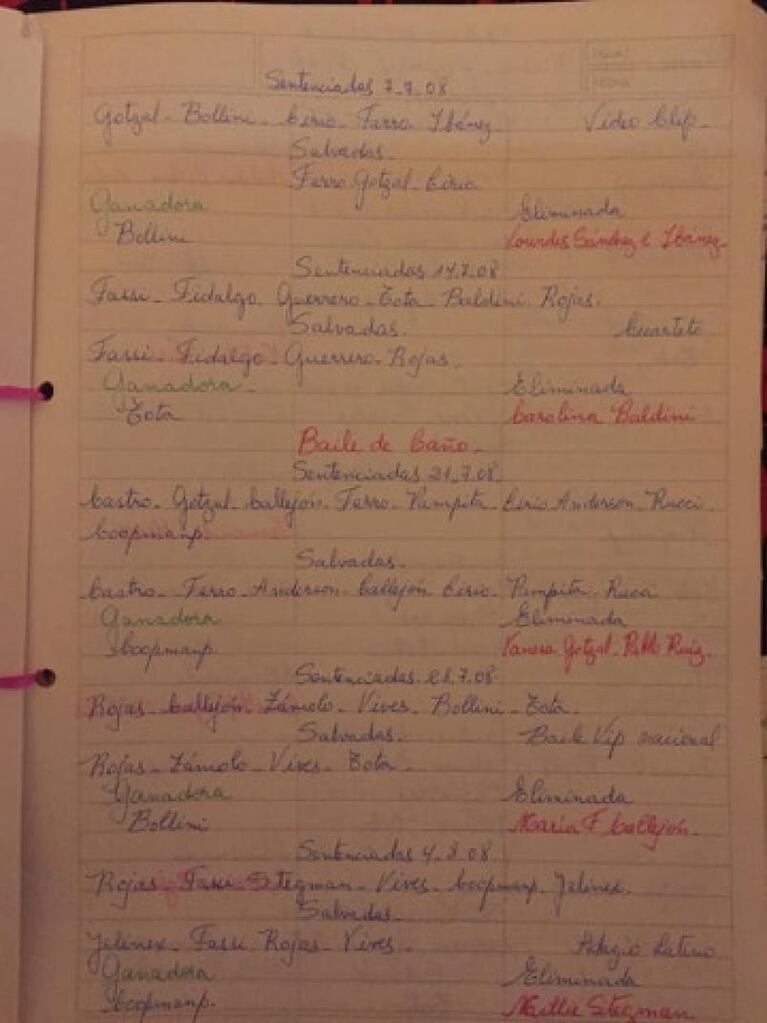 Sentenciadas 7-7-08
Gotzal - Bollini - Cirio - Farro. Ibánez. Video Clip -
Salvadas.
Farro. Gotzal - Cirio
Ganadora Eliminada
Bollini Lourdes Sánchez e Ibánez.
Sentenciadas 14.7.08
Fassi - Fidalgo. Guerrero - Tota - Baldini. Rojas.
Salvadas. Cuarteto
Fassi - Fidalgo - Guerrero - Rojas.
Ganadora - Eliminada
Tota Carolina Baldini
Baile de Caño -
Sentenciadas 21.7.08
Castro - Gotzal - Callejón - Farro - Pampita - Cirio - Anderson - Rucci.
Coopmanp.
Salvadas.
Castro - Farro - Anderson - Callejón. Cirio - Pampita -
Ganadora Eliminada
Coopmanp. Vanesa Gotzal - Pablo Ruiz.
Sentenciadas 28.7.08
Rojas - Callejón - Zámolo - Vives - Bollini - Tota.
Salvadas - Baile Vip nacional
Rojas - Zámolo - Vives - Tota -
Ganadora Eliminada
Bollini María F. Callejón.
Sentenciadas 4-8-08.
Rojas - Fassi - Stegman - Vives - Coopmanp. Jelinex.
Salvadas -
Jelinex - Fassi Rojas - Vives. Adagio Latino
Ganadora Eliminada
Coopmanp. Naillie Stegman